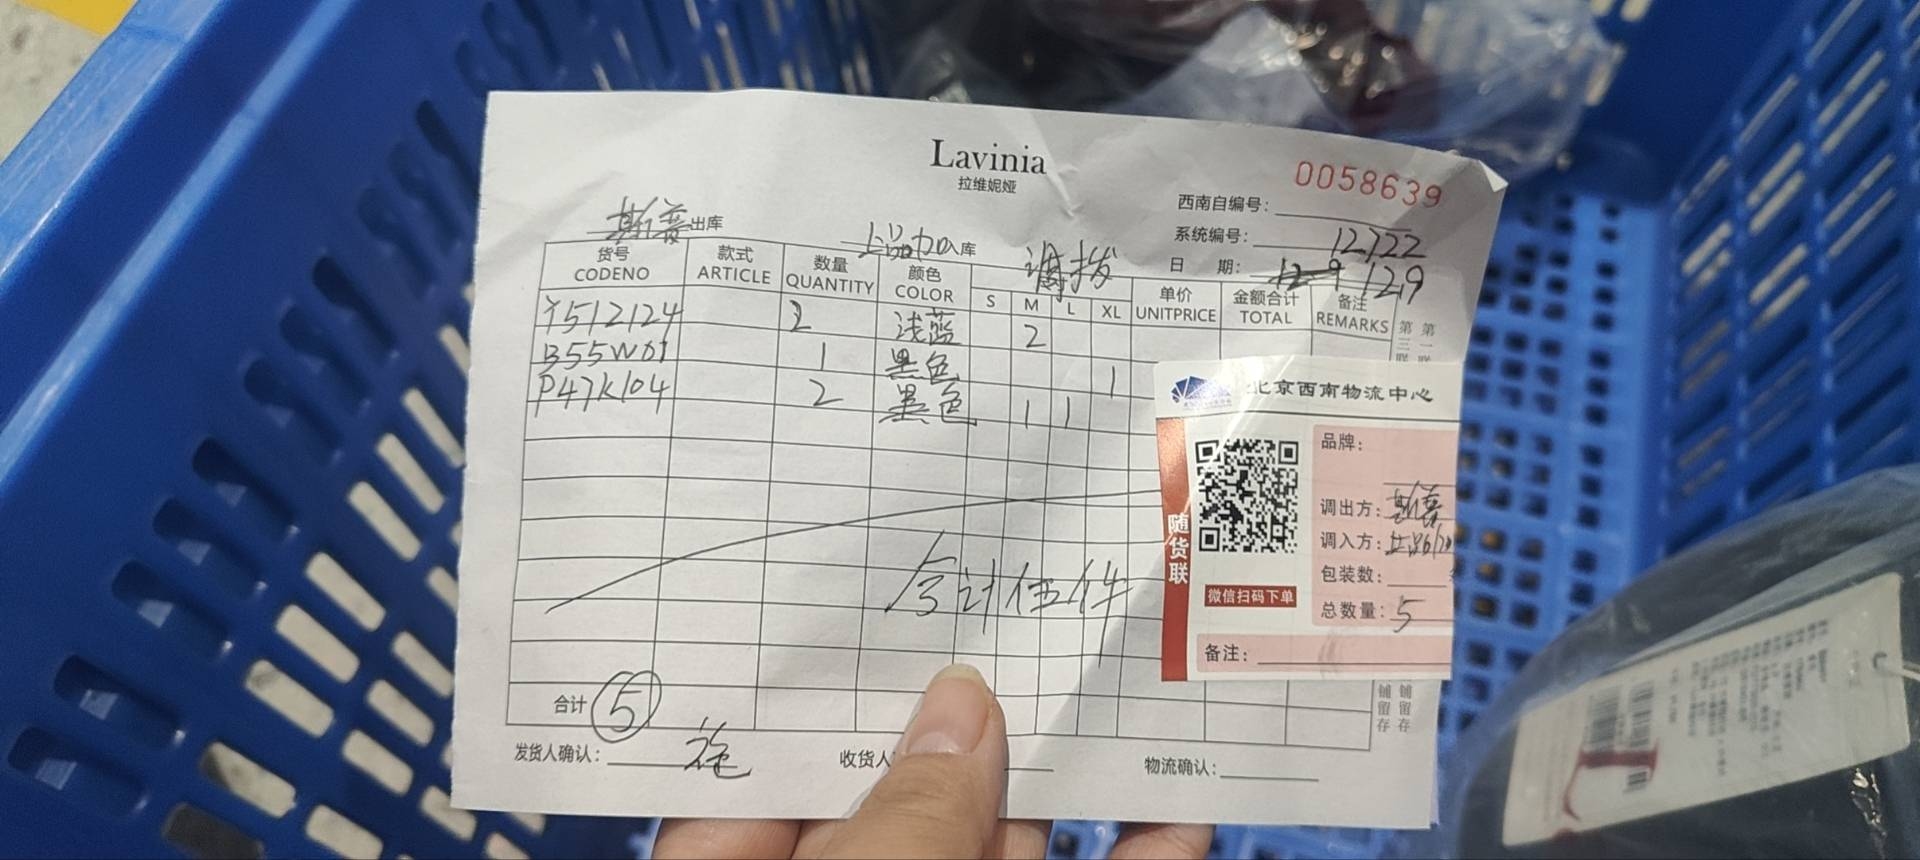 Lavinia
拉维妮娅
0058639
西南自编号:
系统编号: 12722
日 期: 12.9
斯普出库
上品加库
调拨
货号 款式 数量 颜色 S M L XL 单价 金额合计 备注
CODENO ARTICLE QUANTITY COLOR UNITPRICE TOTAL REMARKS
Y512124 2 浅蓝 2
B55W01 1 黑色 1
P47K104 2 黑色 1 1
合计伍件
合计 5
发货人确认:
收货人
物流确认:
第三联
第一联
铺留存
铺留存
北京西南物流中心
随货联
微信扫码下单
品牌:
调出方: 斯普
调入方: 上品
包装数:
总数量: 5
备注: